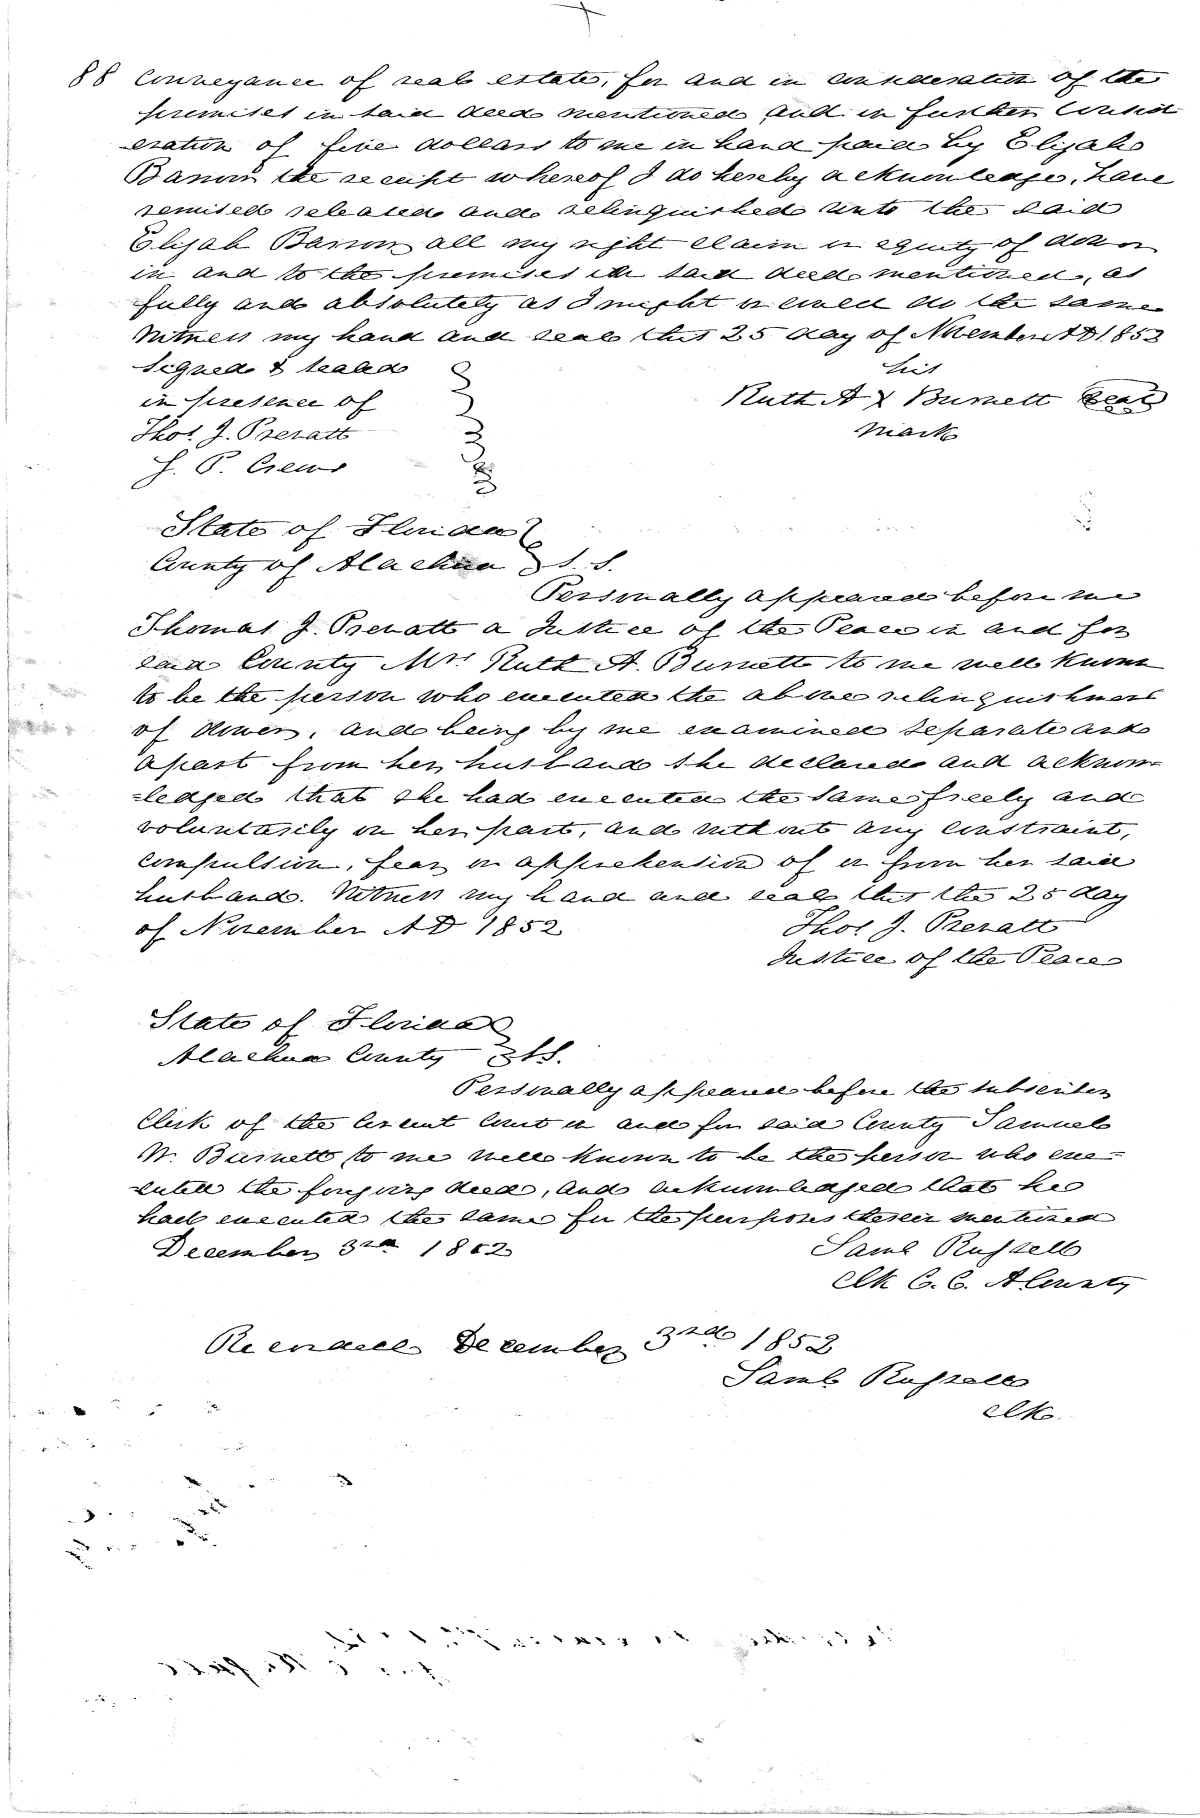 88 Conveyance of real estate, for and in consideration of the
premises in said deed mentioned and in further consid
eration of five dollars to me in hand paid by Elijah
Barron the receipt whereof I do hereby acknowledge, have
remised released and relinquished unto the said
Elijah Barron all my right claim or equity of dower
in and to the premises in said deed mentioned, as
fully and absolutely as I might or could do the same
Witness my hand and seal this 25 day of November AD 1852
Signed & seald
in presence of
Thos. J. Prevatt
S. P. Crews
his
Ruth A X Burnett Seal
mark
State of Florida
County of Alachua S. S.
Personally appeared before me
Thomas J. Prevatt a Justice of the Peace in and for
said County Mrs Ruth A. Burnett to me well known
to be the person who executed the above relinquishment
of dower, and being by me examined separate and
apart from her husband she declared and acknow=
=ledged that she had executed the same freely and
voluntarily on her part, and without any constraint,
compulsion, fear or apprehension of or from her said
husband. Witness my hand and seal this the 25 day
of November AD 1852
Thos J. Prevatt
Justice of the Peace
State of Florida
Alachua County SS.
Personally appeared before the subscriber
Clerk of the Circuit Court in and for said County Samuel
W. Burnett to me well known to be the person who exe=
cuted the forgoing deed, and acknowledged that he
had executed the same for the purposes therein mentioned
December 3rd 1852
Saml Russell
Clk C. C. A County
Recorded December 3rd 1852
Saml Russell
Clk